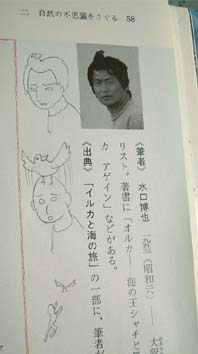 二 自然の不思議をさぐる 58
《筆者》 水口博也 一九五三（昭和二八）── 大阪
リスト。著書に「オルカ 海の王シャチと
カ アゲイン」などがある。
《出典》 「イルカと海の旅」の一部に、筆者が